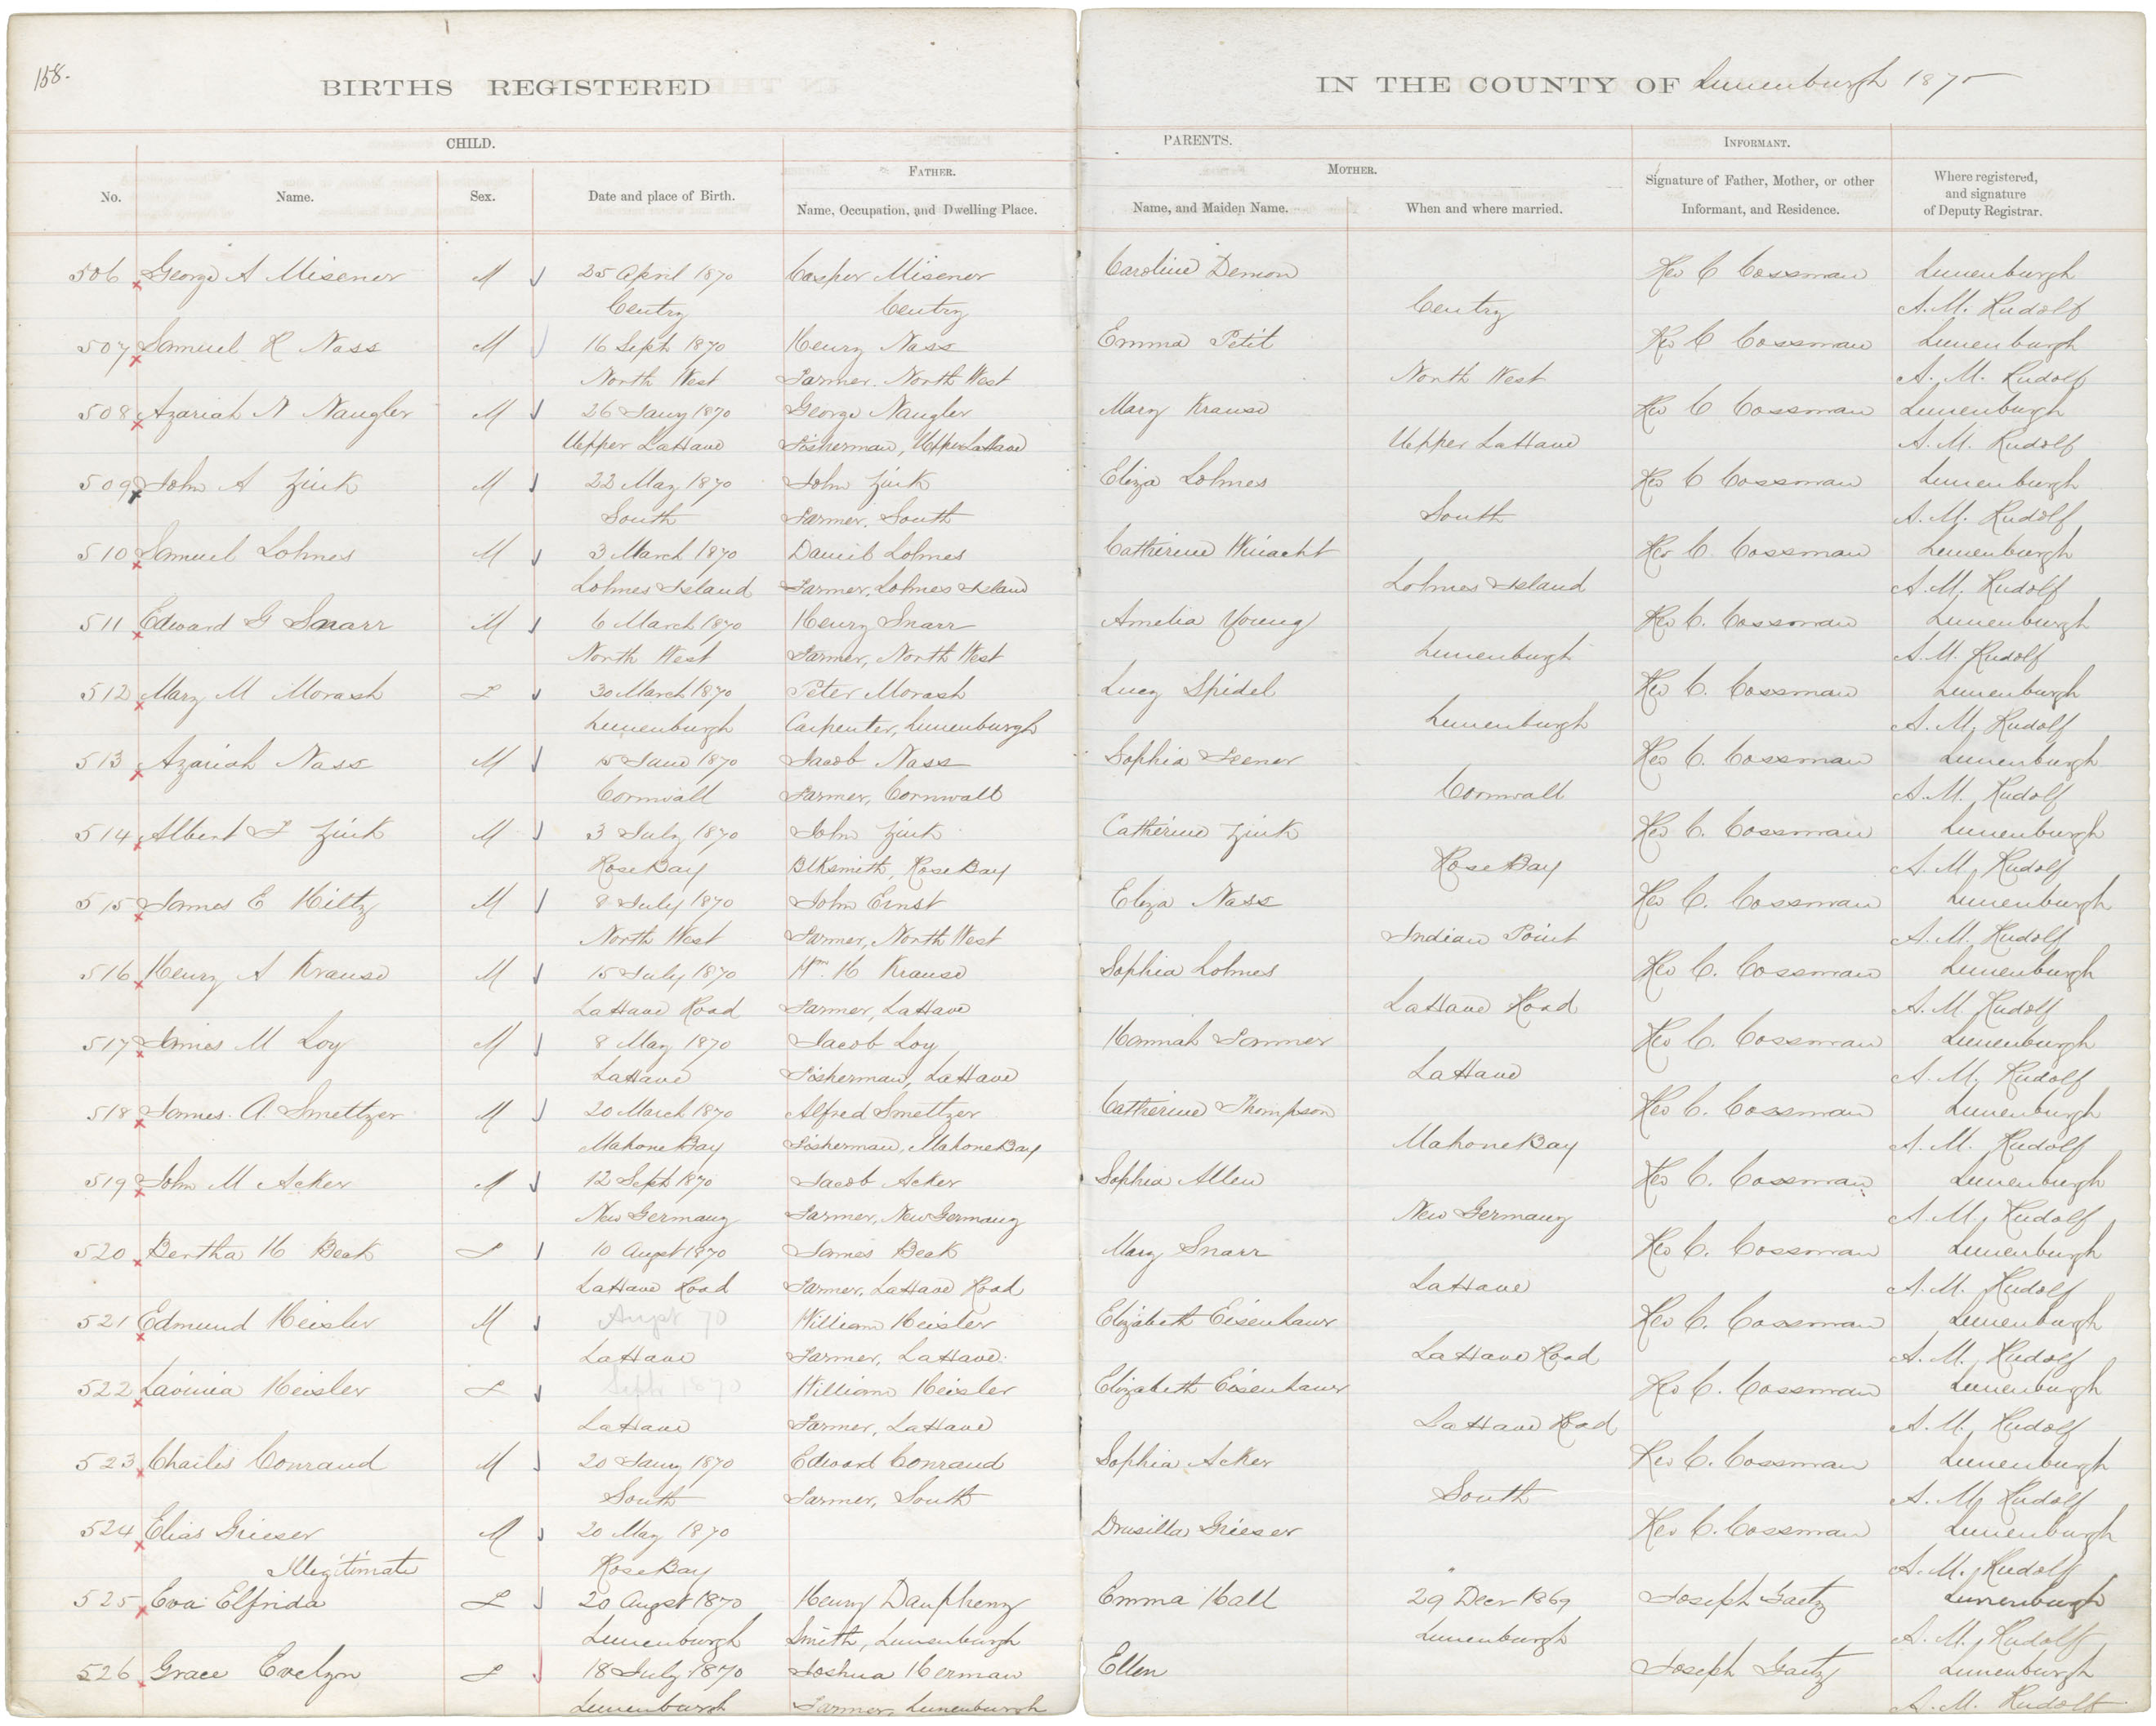 158.
BIRTHS REGISTERED IN THE COUNTY OF Lunenburgh 187
CHILD. PARENTS. INFORMANT.
FATHER. MOTHER.
No. Name. Sex. Date and place of Birth. Name, Occupation, and Dwelling Place. Name, and Maiden Name. When and where married. Signature of Father, Mother, or other Informant, and Residence. Where registered, and signature of Deputy Registrar.
506 George A Misener M 25 April 1870 Casper Misener Caroline Demon Rev C Cossman Lunenburgh
Centry Centry Centry A. M. Rudolf
507 Samuel H Nass M 16 Sept 1870 Henry Nass Emma Petit Rev C Cossman Lunenburgh
North West Farmer. North West North West A. M. Rudolf
508 Azariah N Naugler M 26 Jany 1870 George Naugler Mary Krause Rev C Cossman Lunenburgh
Upper LaHave Fisherman, Upper LaHave Upper LaHave A. M. Rudolf
509 John A Zink M 22 May 1870 John Zink Eliza Lohnes Rev C Cossman Lunenburgh
South Farmer, South South A. M. Rudolf
510 Samuel Lohnes M 3 March 1870 Daniel Lohnes Catherine Winacht Rev C. Cossman Lunenburgh
Lohnes Island Farmer, Lohnes Island Lohnes Island A. M. Rudolf
511 Edward G Snarr M 6 March 1870 Henry Snarr Amelia Young Rev C. Cossman Lunenburgh
North West Farmer, North West Lunenburgh A. M. Rudolf
512 Mary M Morash F 30 March 1870 Peter Morash Lucy Spidel Rev C. Cossman Lunenburgh
Lunenburgh Carpenter, Lunenburgh Lunenburgh A. M. Rudolf
513 Azariah Nass M 15 June 1870 Jacob Nass Sophia Feener Rev C. Cossman Lunenburgh
Cornwall Farmer, Cornwall Cornwall A. M. Rudolf
514 Albert F Zink M 3 July 1870 John Zink Catherine Zink Rev C. Cossman Lunenburgh
Rose Bay Blksmith, Rose Bay Rose Bay A. M. Rudolf
515 James E Hiltz M 8 July 1870 John Ernst Eliza Nass Rev C. Cossman Lunenburgh
North West Farmer, North West Indian Point A. M. Rudolf
516 Henry A Krause M 15 July 1870 Wm. H Krause Sophia Lohnes Rev C. Cossman Lunenburgh
LaHave Road Farmer, LaHave LaHave Road A. M. Rudolf
517 James M Loy M 8 May 1870 Jacob Loy Hannah Sommer Rev C. Cossman Lunenburgh
LaHave Fisherman, LaHave LaHave A. M. Rudolf
518 James. A. Smeltzer M 20 March 1870 Alfred Smeltzer Catherine Thompson Rev C. Cossman Lunenburgh
Mahone Bay Fisherman, Mahone Bay Mahone Bay A. M. Rudolf
519 John M Acker M 12 Sept 1870 Jacob Acker Sophia Allen Rev C. Cossman Lunenburgh
New Germany Farmer, New Germany New Germany A. M. Rudolf
520 Bertha H Beak F 10 Augst 1870 James Beak Mary Snarr Rev C. Cossman Lunenburgh
LaHave Road Farmer, LaHave Road LaHave A. M. Rudolf
521 Edmund Heisler M Augst 70 William Heisler Elizabeth Eisenhaur Rev C. Cossman Lunenburgh
LaHave Farmer, LaHave. LaHave Road A. M. Rudolf
522 Lavinia Heisler F Septr 1870 William Heisler Elizabeth Eisenhaur Rev C. Cossman Lunenburgh
LaHave Farmer, LaHave LaHave Road A. M. Rudolf
523 Charles Conraud M 20 Jany 1870 Edward Conraud Sophia Acker Rev C. Cossman Lunenburgh
South Farmer, South South A. M. Rudolf
524 Elias Grieser M 20 May 1870 Drusilla Grieser Rev C. Cossman Lunenburgh
Illegitimate Rose Bay " A. M. Rudolf
525 Eva Elfrida F 20 Augst 1870 Henry Daupheny Emma Hall 29 Decr 1869 Joseph Gaetz Lunenburgh
Lunenburgh Smith, Lunenburgh Lunenburgh A. M. Rudolf
526 Grace Evelyn F 18 July 1870 Joshua Herman Ellen Joseph Gaetz Lunenburgh
Lunenburgh Farmer, Lunenburgh A. M. Rudolf